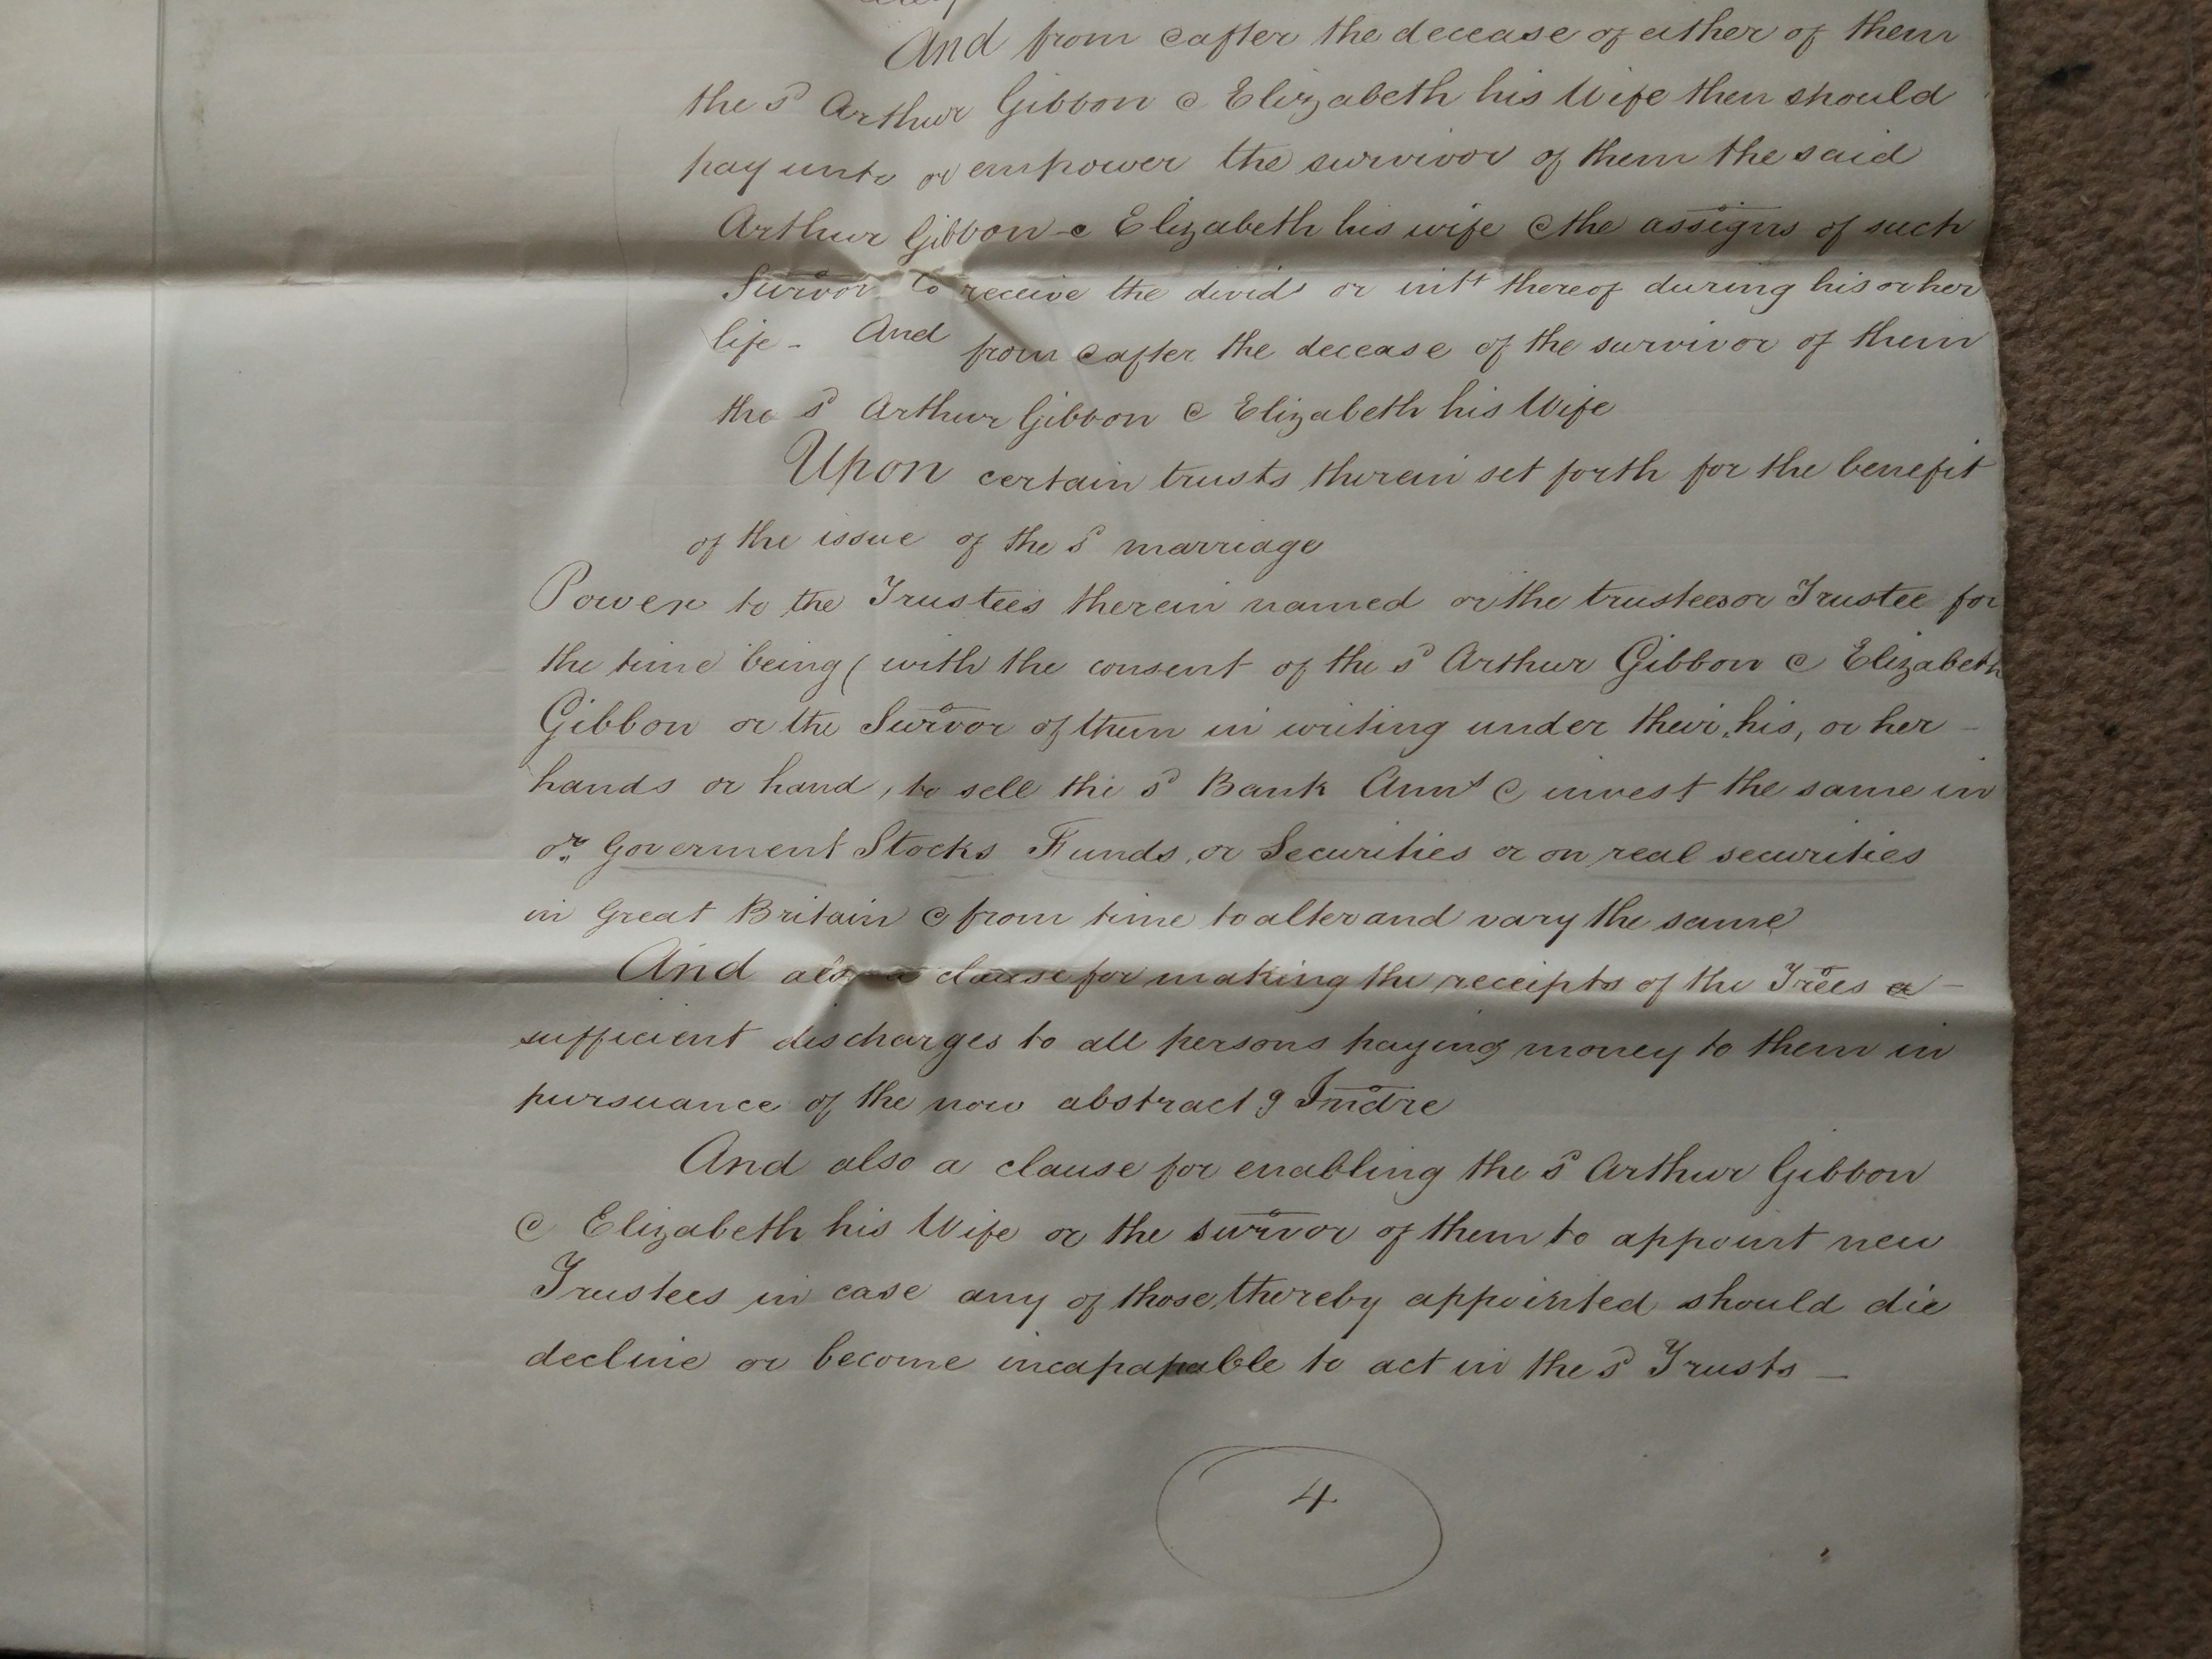 And from & after the decease of either of them
the sd Arthur Gibbon & Elizabeth his Wife then should
pay unto or empower the survivor of them the said
Arthur Gibbon & Elizabeth his wife & the assigns of such
Survor to receive the divids or intt thereof during his or her
life - And from & after the decease of the survivor of them
the sd Arthur Gibbon & Elizabeth his Wife
Upon certain trusts therein set forth for the benefit
of the issue of the sd marriage
Power to the Trustees therein named or the trustees or Trustee for
the time being ( with the consent of the sd Arthur Gibbon & Elizabeth
Gibbon or the Survor of them in writing under their, his, or her -
hands or hand, to sell the sd Bank Annts & invest the same in
or Goverment Stocks Funds, or Securities or on real securities
in Great Britain & from time to alter and vary the same
And also a clause for making the receipts of the Trees a -
sufficient discharges to all persons paying money to them in
pursuance of the now abstract g Indre
And also a clause for enabling the sd Arthur Gibbon
& Elizabeth his Wife or the survor of them to appoint new
Trustees in case any of those thereby appointed should die
decline or become incapapable to act in the sd Trusts -
4